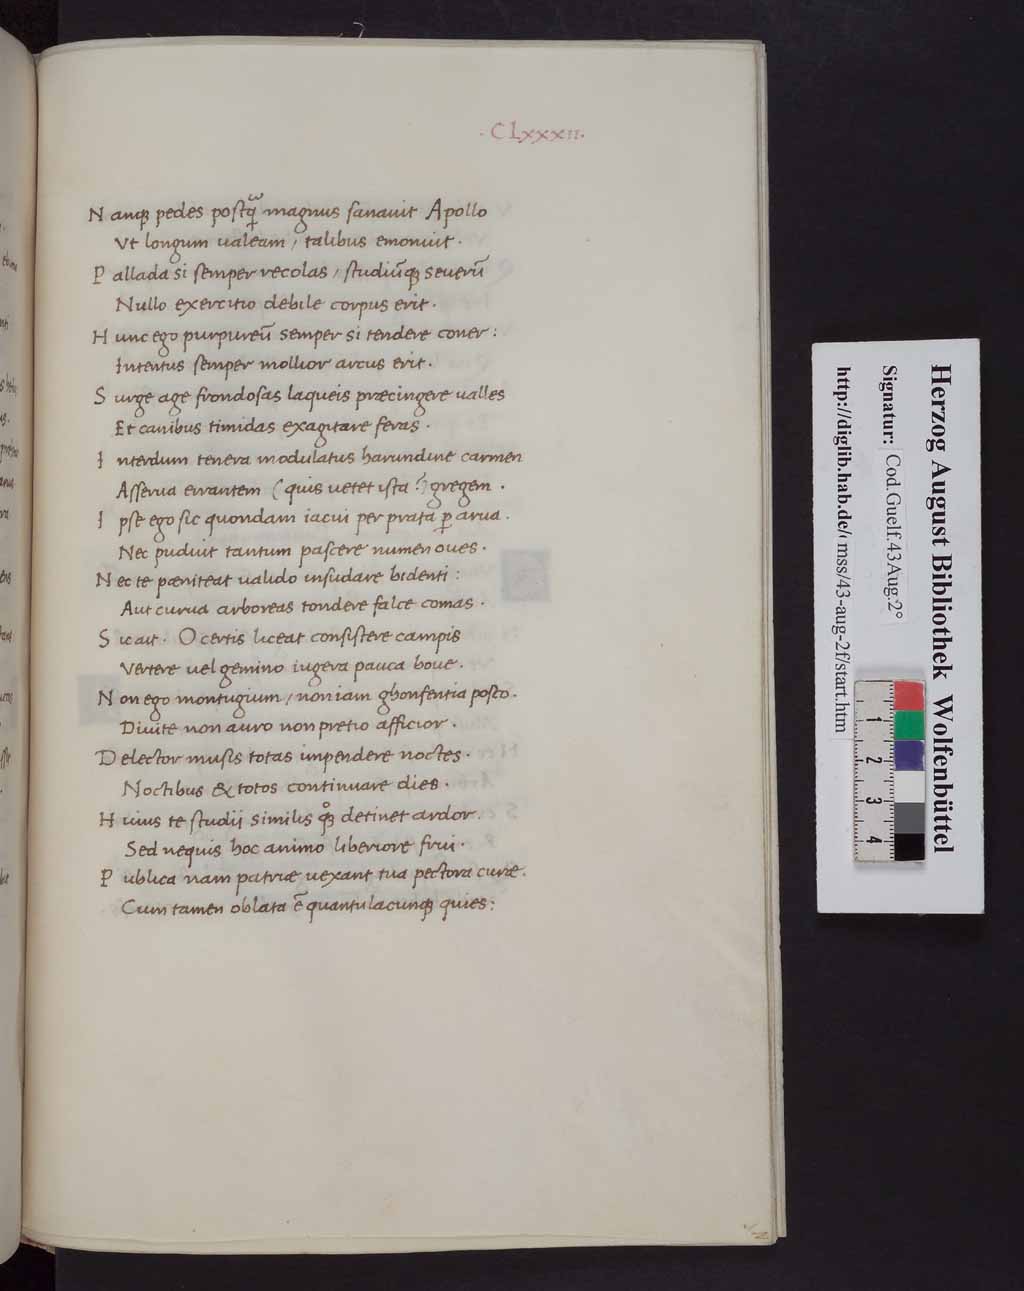 · CLxxxii ·
Namq; pedes postq̃ magnus sanauit Apollo
Vt longum ualeam / talibus emonuit ·
Pallada si semper recolas / studiũq; seuerũ
Nullo exercitio debile corpus erit ·
Hunc ego purpureũ semper si tendere coner :
Intentus semper mollior arcus erit ·
Surge age frondosas laqueis præcingere ualles
Et canibus timidas exagitare feras ·
Interdum tenera modulatus harundine carmen
Asserua errantem ( quis uetet ista ?) gregem ·
Ipse ego sic quondam iacui per prata ꝑ arua ·
Nec puduit tantum pascere numen oues ·
Nec te pæniteat ualido insudare bidenti :
Aut curua arboreas tondere falce comas ·
Sic ait · O certis liceat consistere campis
Vertere uel gemino iugera pauca boue ·
Non ego montugium / non iam ghonsentia posco ·
Diuite non auro non pretio afficior ·
Delector musis totas impendere noctes ·
Noctibus & totos continuare dies ·
Huius te studij similis q̊q; detinet ardor ·
Sed nequis hoc animo liberiore frui ·
Publica nam patriæ uexant tua pectora curæ ·
Cum tamen oblata ẽ quantulacunq; quies :
Herzog August Bibliothek Wolfenbüttel
Signatur: Cod.Guelf.43 Aug.2°
http://diglib.hab.de/ mss/43-aug-2f/start.htm
1
2
3
4